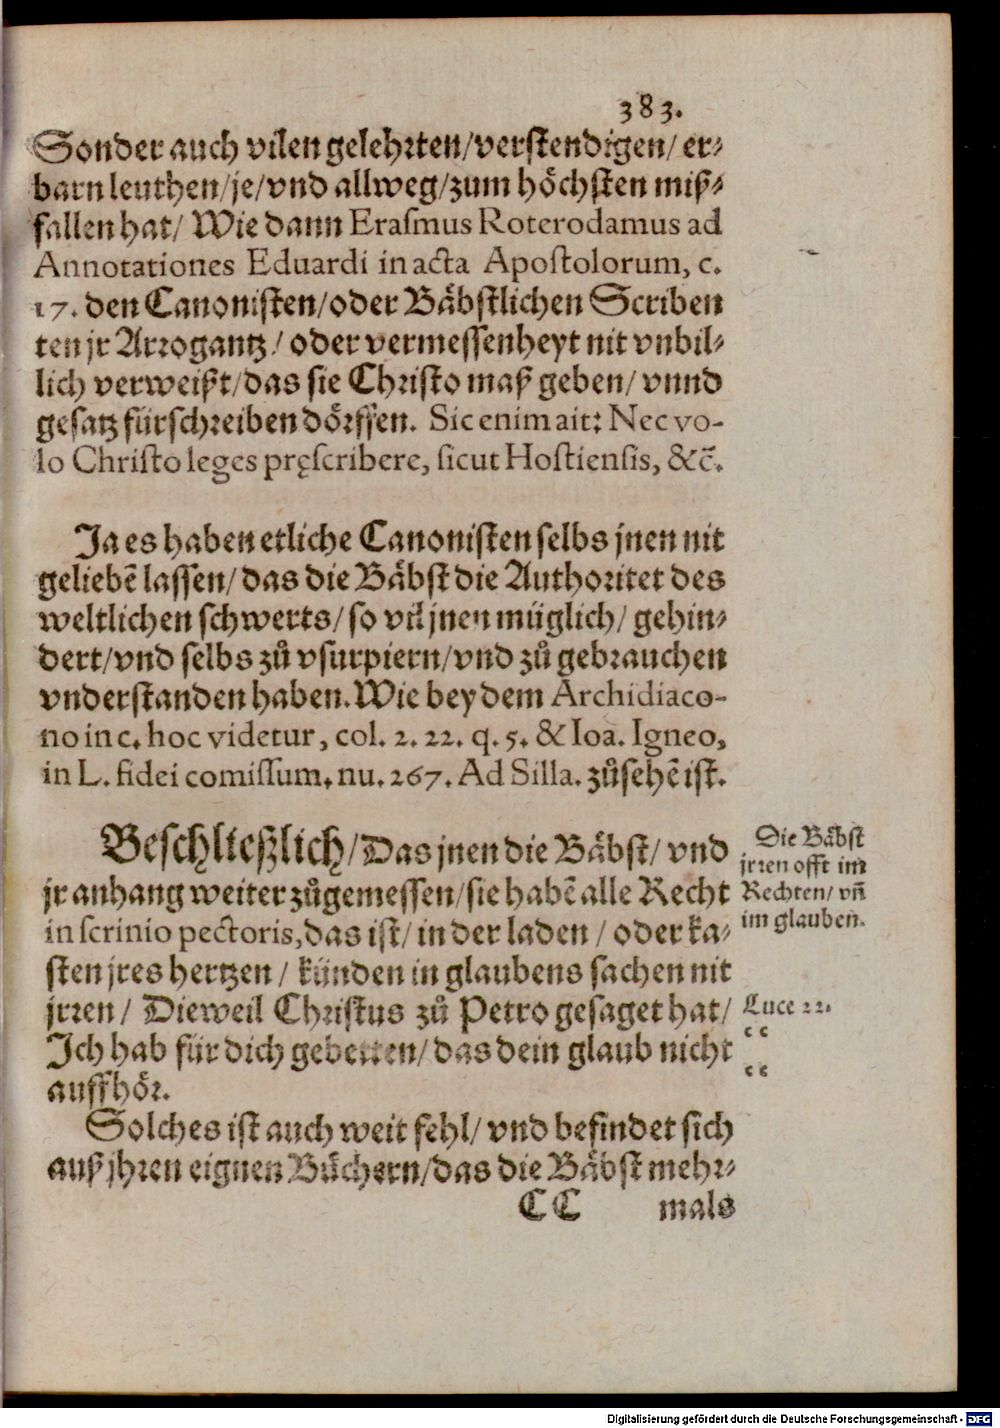 383.
Sonder auch vilen gelehrten/verstendigen/ er-
barn leuthen/je/vnd allweg/zum höchsten miß-
fallen hat/ Wie dann Erasmus Roterodamus ad
Annotationes Eduardi in acta Apostolorum, c.
17. den Canonisten/oder Bäbstlichen Scriben
ten jr Arrogantz/ oder vermessenheyt nit vnbil-
lich verweißt/das sie Christo maß geben/ vnnd
gesatz fürschreiben dörffen. Sic enim ait: Nec vo-
lo Christo leges pręscribere, sicut Hostiensis, &c̄.
Ja es haben etliche Canonisten selbs jnen nit
geliebē lassen/das die Bäbst die Authoritet des
weltlichen schwerts/so vil jnen müglich/ gehin-
dert/vnd selbs zů vsurpiern/vnd zů gebrauchen
vnderstanden haben. Wie bey dem Archidiaco-
no in c. hoc videtur, col. 2. 22. q. 5. & Ioa. Igneo,
in L. fidei comissum. nu. 267. Ad Silla. zůsehē ist.
Beschließlich/Das jnen die Bäbst/ vnd
jr anhang weiter zůgemessen/sie habē alle Recht
in scrinio pectoris,das ist/in der laden / oder ka-
sten jres hertzen / künden in glaubens sachen nit
jrren/ Dieweil Christus zů Petro gesaget hat/
Ich hab für dich gebetten/das dein glaub nicht
auffhör.
Solches ist auch weit fehl/ vnd befindet sich
auß jhren eignen Büchern/das die Bäbst mehr-
CC mals
Die Bäbst
jrren offt im
Rechten/ vñ
im glauben.
Luce 22.
"
"
Digitalisierung gefördert durch die Deutsche Forschungsgemeinschaft - DFG